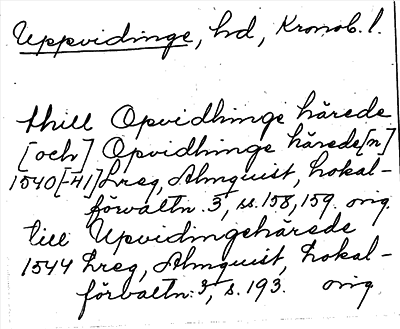 Uppvidinge, hd, Kronob. l.
thill Opvidhinge härede
[och] Opvidhinge härede[n]
1540[-41] Lreg, Almquist, Lokal-
förvaltn. 3, ss. 158, 159. orig.
till Upvidingehärede
1544 Lreg, Almquist, Lokal-
förvaltn. 3, s. 193. orig